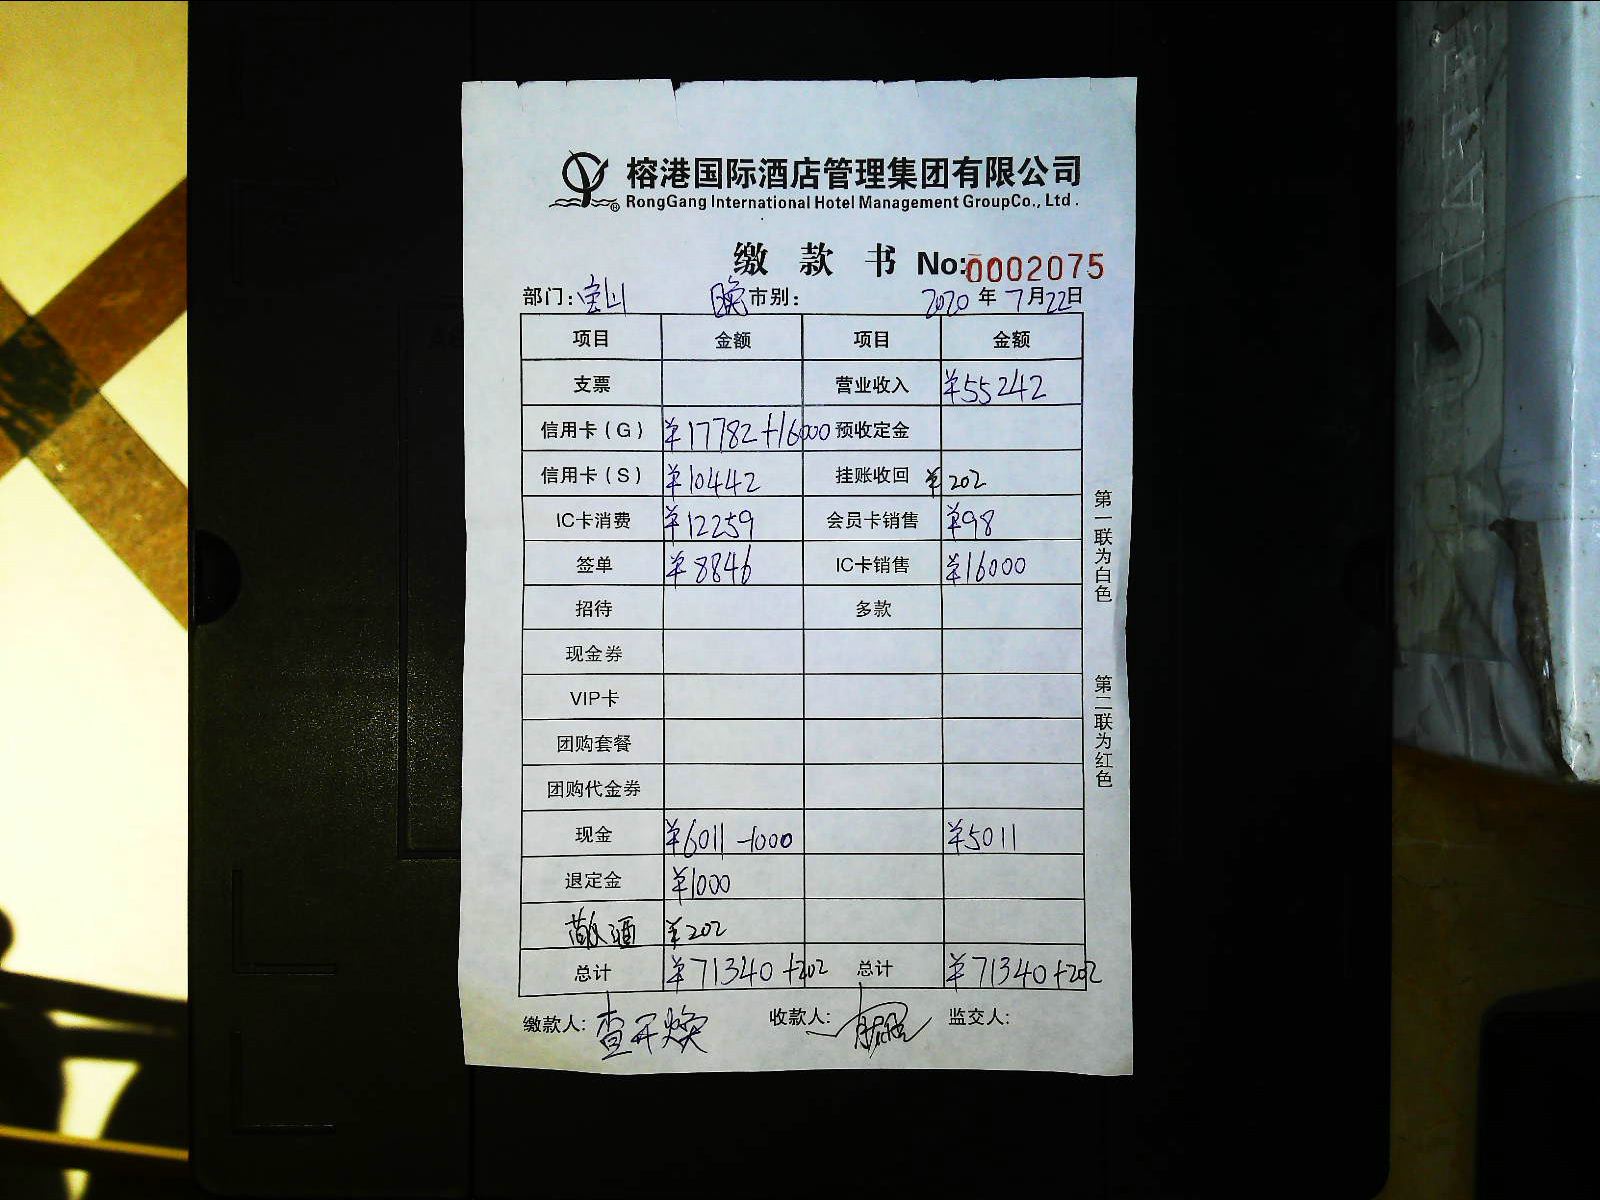 榕港国际酒店管理集团有限公司
RongGang International Hotel Management GroupCo., Ltd.
缴款书 No:0002075
部门:宝山 晚市别: 2020年7月22日
项目 金额 项目 金额
支票 营业收入 ¥55242
信用卡(G) ¥17782+16000 预收定金
信用卡(S) ¥10442 挂账收回 ¥202
IC卡消费 ¥12259 会员卡销售 ¥98
签单 ¥8846 IC卡销售 ¥16000
招待 多款
现金券
VIP卡
团购套餐
团购代金券
现金 ¥6011-1000 ¥5011
退定金 ¥1000
酒 ¥202
总计 ¥71340+202 总计 ¥71340+202
缴款人: 查开焕 收款人: 监交人:
第一联为白色
第二联为红色